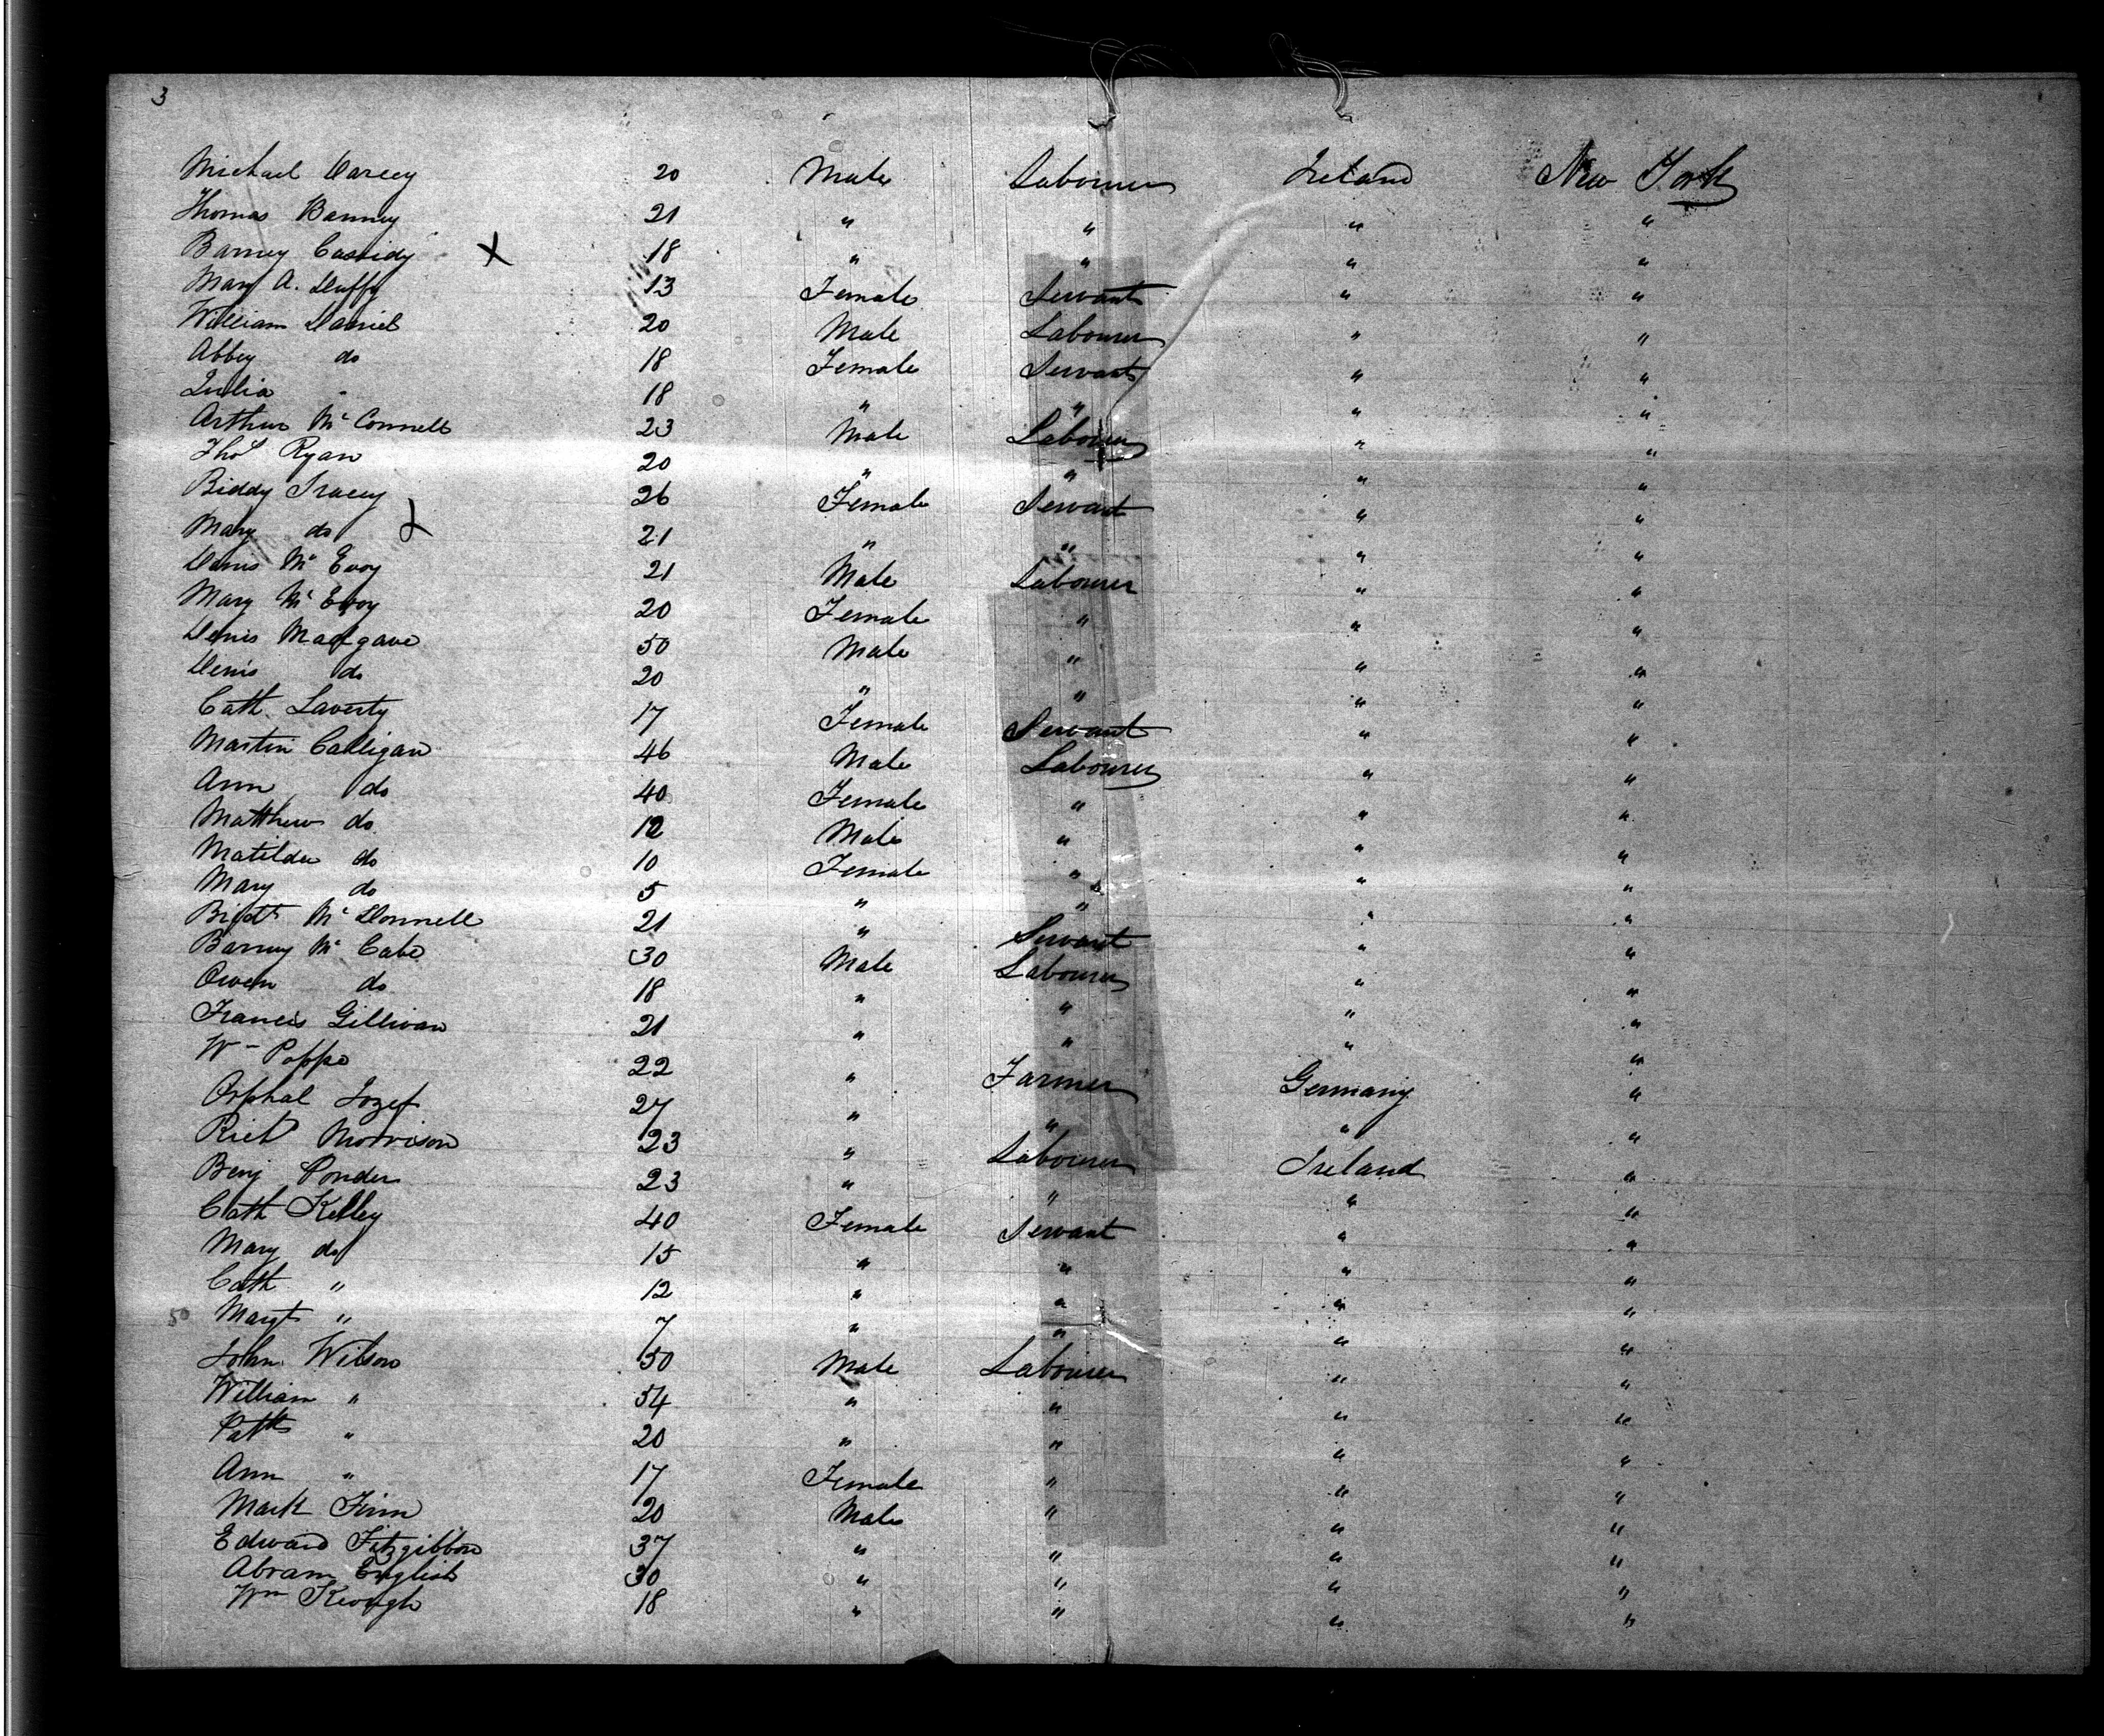 3
Michael Darcey 20 Male Labourer Ireland New York
Thomas Banney 21 " " " "
Barney Cassidy X 18 " " " "
Mary A. Duffy 13 Female Servant " "
William Daniel 20 Male Labourer " "
Abbey do 18 Female Servant " "
Julia " 18 " " " "
Arthur McConnell 23 Male Labourer " "
Thos Ryan 20 " " " "
Biddy Tracey 26 Female Servant " "
Mary do X 21 " " " "
Denis McEvoy 21 Male Labourer " "
Mary McEvoy 20 Female " " "
Denis Madgave 50 Male " " "
Denis do 20 " " " "
Cath Laverty 17 Female Servant " "
Martin Calligan 46 Male Labourer " "
Ann do 40 Female " " "
Matthew do 12 Male " " "
Matilda do 10 Female " " "
Mary do 5 " " " "
Bridt McDonnell 21 " Servant " "
Barney McCabe 30 Male Labourer " "
Owen do 18 " " " "
Francis Gillivan 21 " " " "
Wm Poppe 22 " Farmer Germany "
Orphal Jozef 27 " " " "
Rich Morrison 23 " Labourer Ireland "
Benj Ponder 23 " " " "
Cath Kelley 40 Female Servant " "
Mary do 15 " " " "
Cath " 12 " " " "
50 Margt " 7 " " " "
John Wilson 50 Male Labourer " "
William " 54 " " " "
Patk " 20 " " " "
Ann " 17 Female " " "
Mark Finn 20 Male " " "
Edward Fitzgibbon 37 " " " "
Abram English 30 " " " "
Wm Keough 18 " " " "